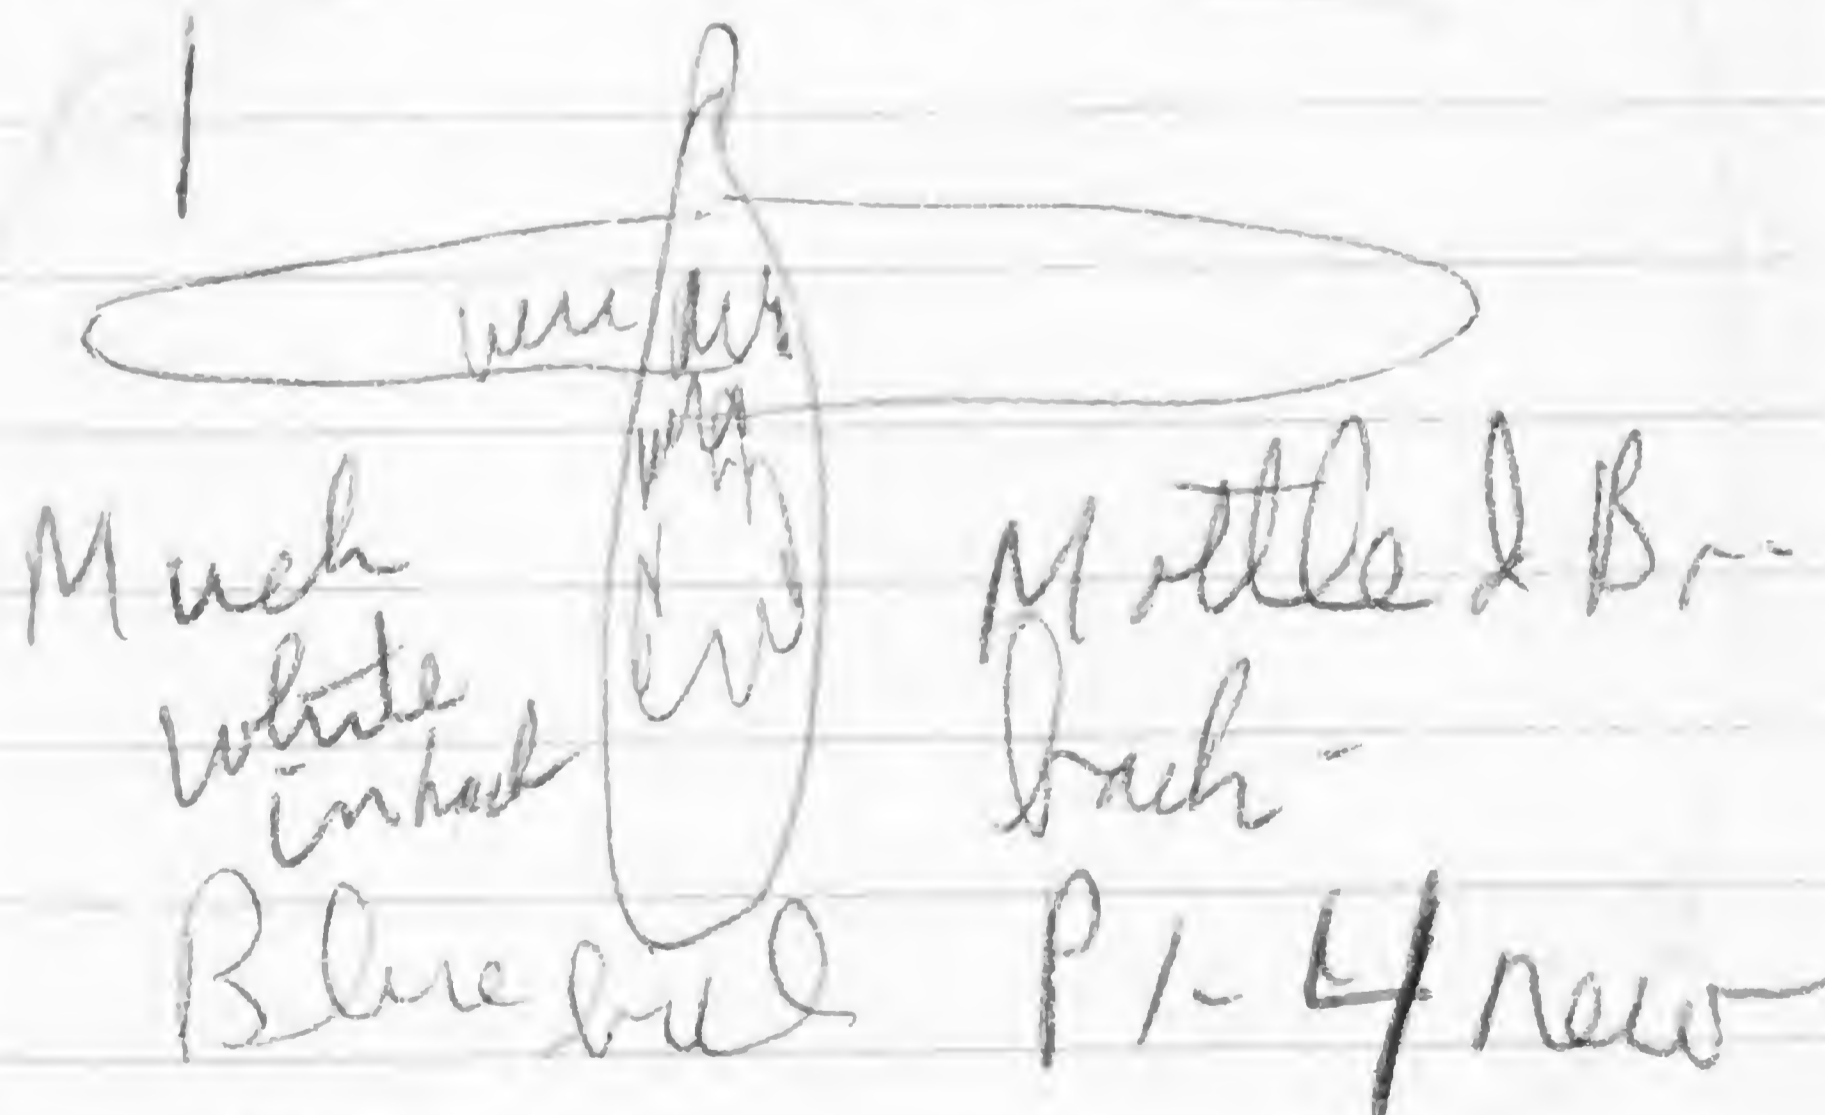 1
Much
white
in back
Blue bill
Mottled Br-
back -
P 1-4 new